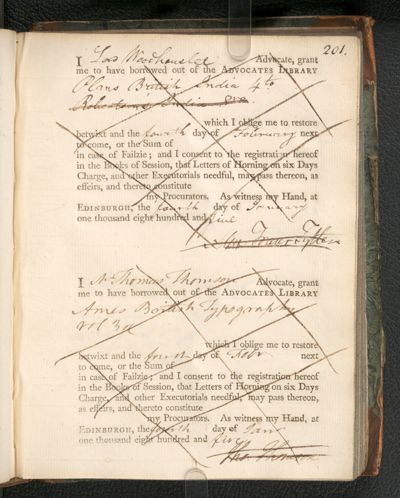 201.
I Lord Woodhouselee Advocate, grant
me to have borrowed out of the ADVOCATES LIBRARY
Plans British India 4to
Robertsons India 8vo.
which I oblige me to restore
betwixt and the fourth day of February next
to come, or the Sum of
in case of Failzie; and I consent to the registration hereof
in the Books of Session, that Letters of Horning on six Days
Charge, and other Executorials needful, may pass thereon, as
effeirs, and thereto constitute
my Procurators. As witness my Hand, at
EDINBURGH, the fourth day of January
one thousand eight hundred and five
Fraser Tytler
I Mr Thomas Thomson Advocate, grant
me to have borrowed out of the ADVOCATES LIBRARY
Ames British Typography
vol 3d
which I oblige me to restore
betwixt and the fourth day of Febr next
to come, or the Sum of
in case of Failzie; and I consent to the registration hereof
in the Books of Session, that Letters of Horning on six Days
Charge, and other Executorials needful, may pass thereon,
as effeirs, and thereto constitute
my Procurators. As witness my Hand, at
EDINBURGH, the fourth day of Janr
one thousand eight hundred and five
Tho Thomson